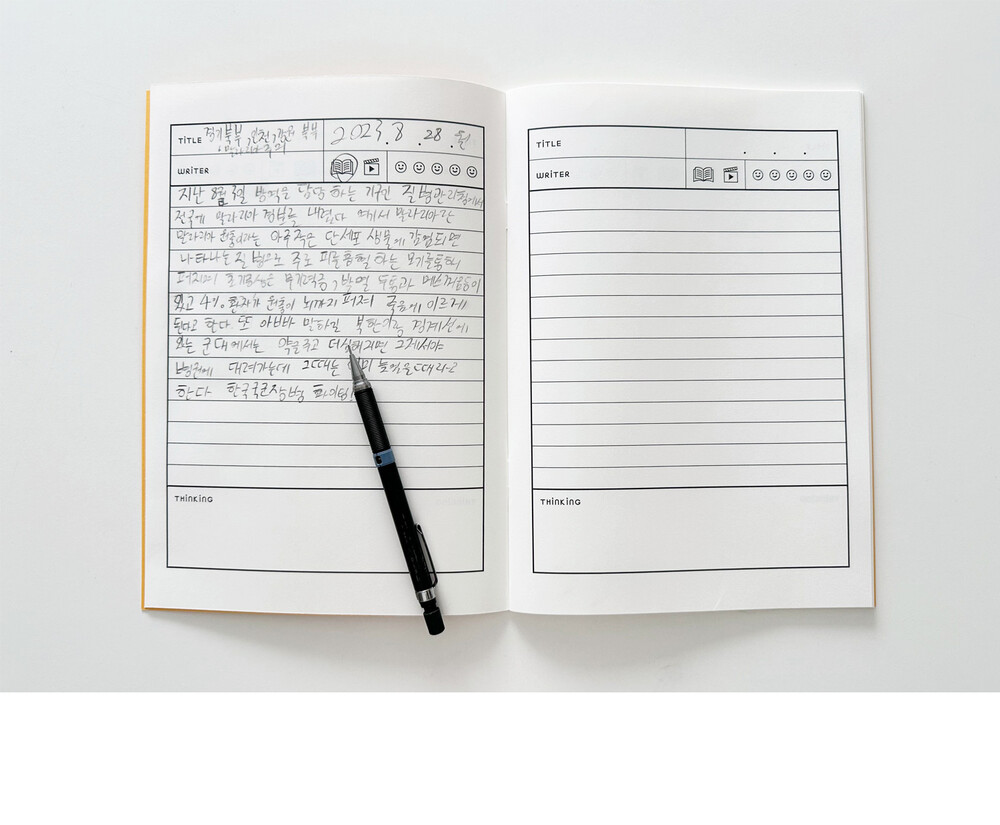 TITLE 경기북부, 인천, 강원 북부 2023. 8. 28. 월
말라리아 주의
WRITER
지난 8월 3일 방역을 담당 하는 기구인 질병관리청에서
전국에 말라리아 경보를 내렸다 여기서 말라리아란
말라리아 원충이라는 아주 작은 단세포 생물에 감염되면
나타나는 질병으로 주로 피를 흡혈 하는 모기를 통해
퍼지며 초기증상은 무기력증, 발열 두통과 메스꺼움등이
있고 4% 환자가 원충이 뇌까지 퍼져 죽음에 이르게
된다고 한다. 또 아빠가 말하길 북한이랑 경계선에
있는 군대에서는 약을 주고 더 심해지면 그제서야
병원에 데려가는데 그때는 이미 늦었을때라고
한다 한국국군장병 파이팅!
THINKING
TITLE . . .
WRITER
THINKING